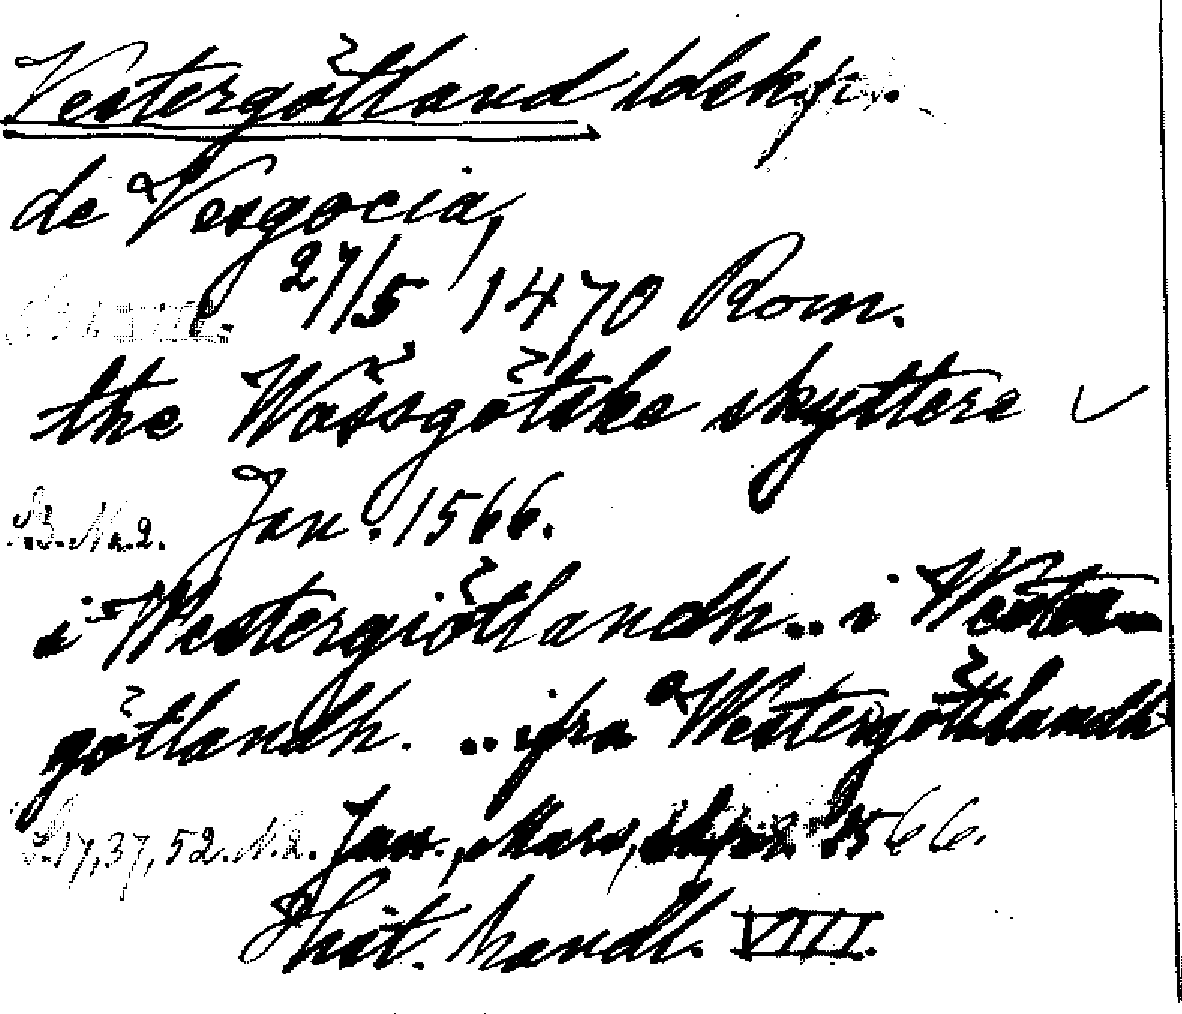 Vestergötland ldskp.
de Vesgocia,
27/5 1470 Rom.
the Wässgötske skyttere
S. 3. N:o 2. Jan. 1566.
i Westergiötlandh... i Wester-
götlandh. .. ifra Westergöttlandh
S. 17, 37, 52. N. 2. Jan., Mars, 1566.
Hist. handl. VIII.